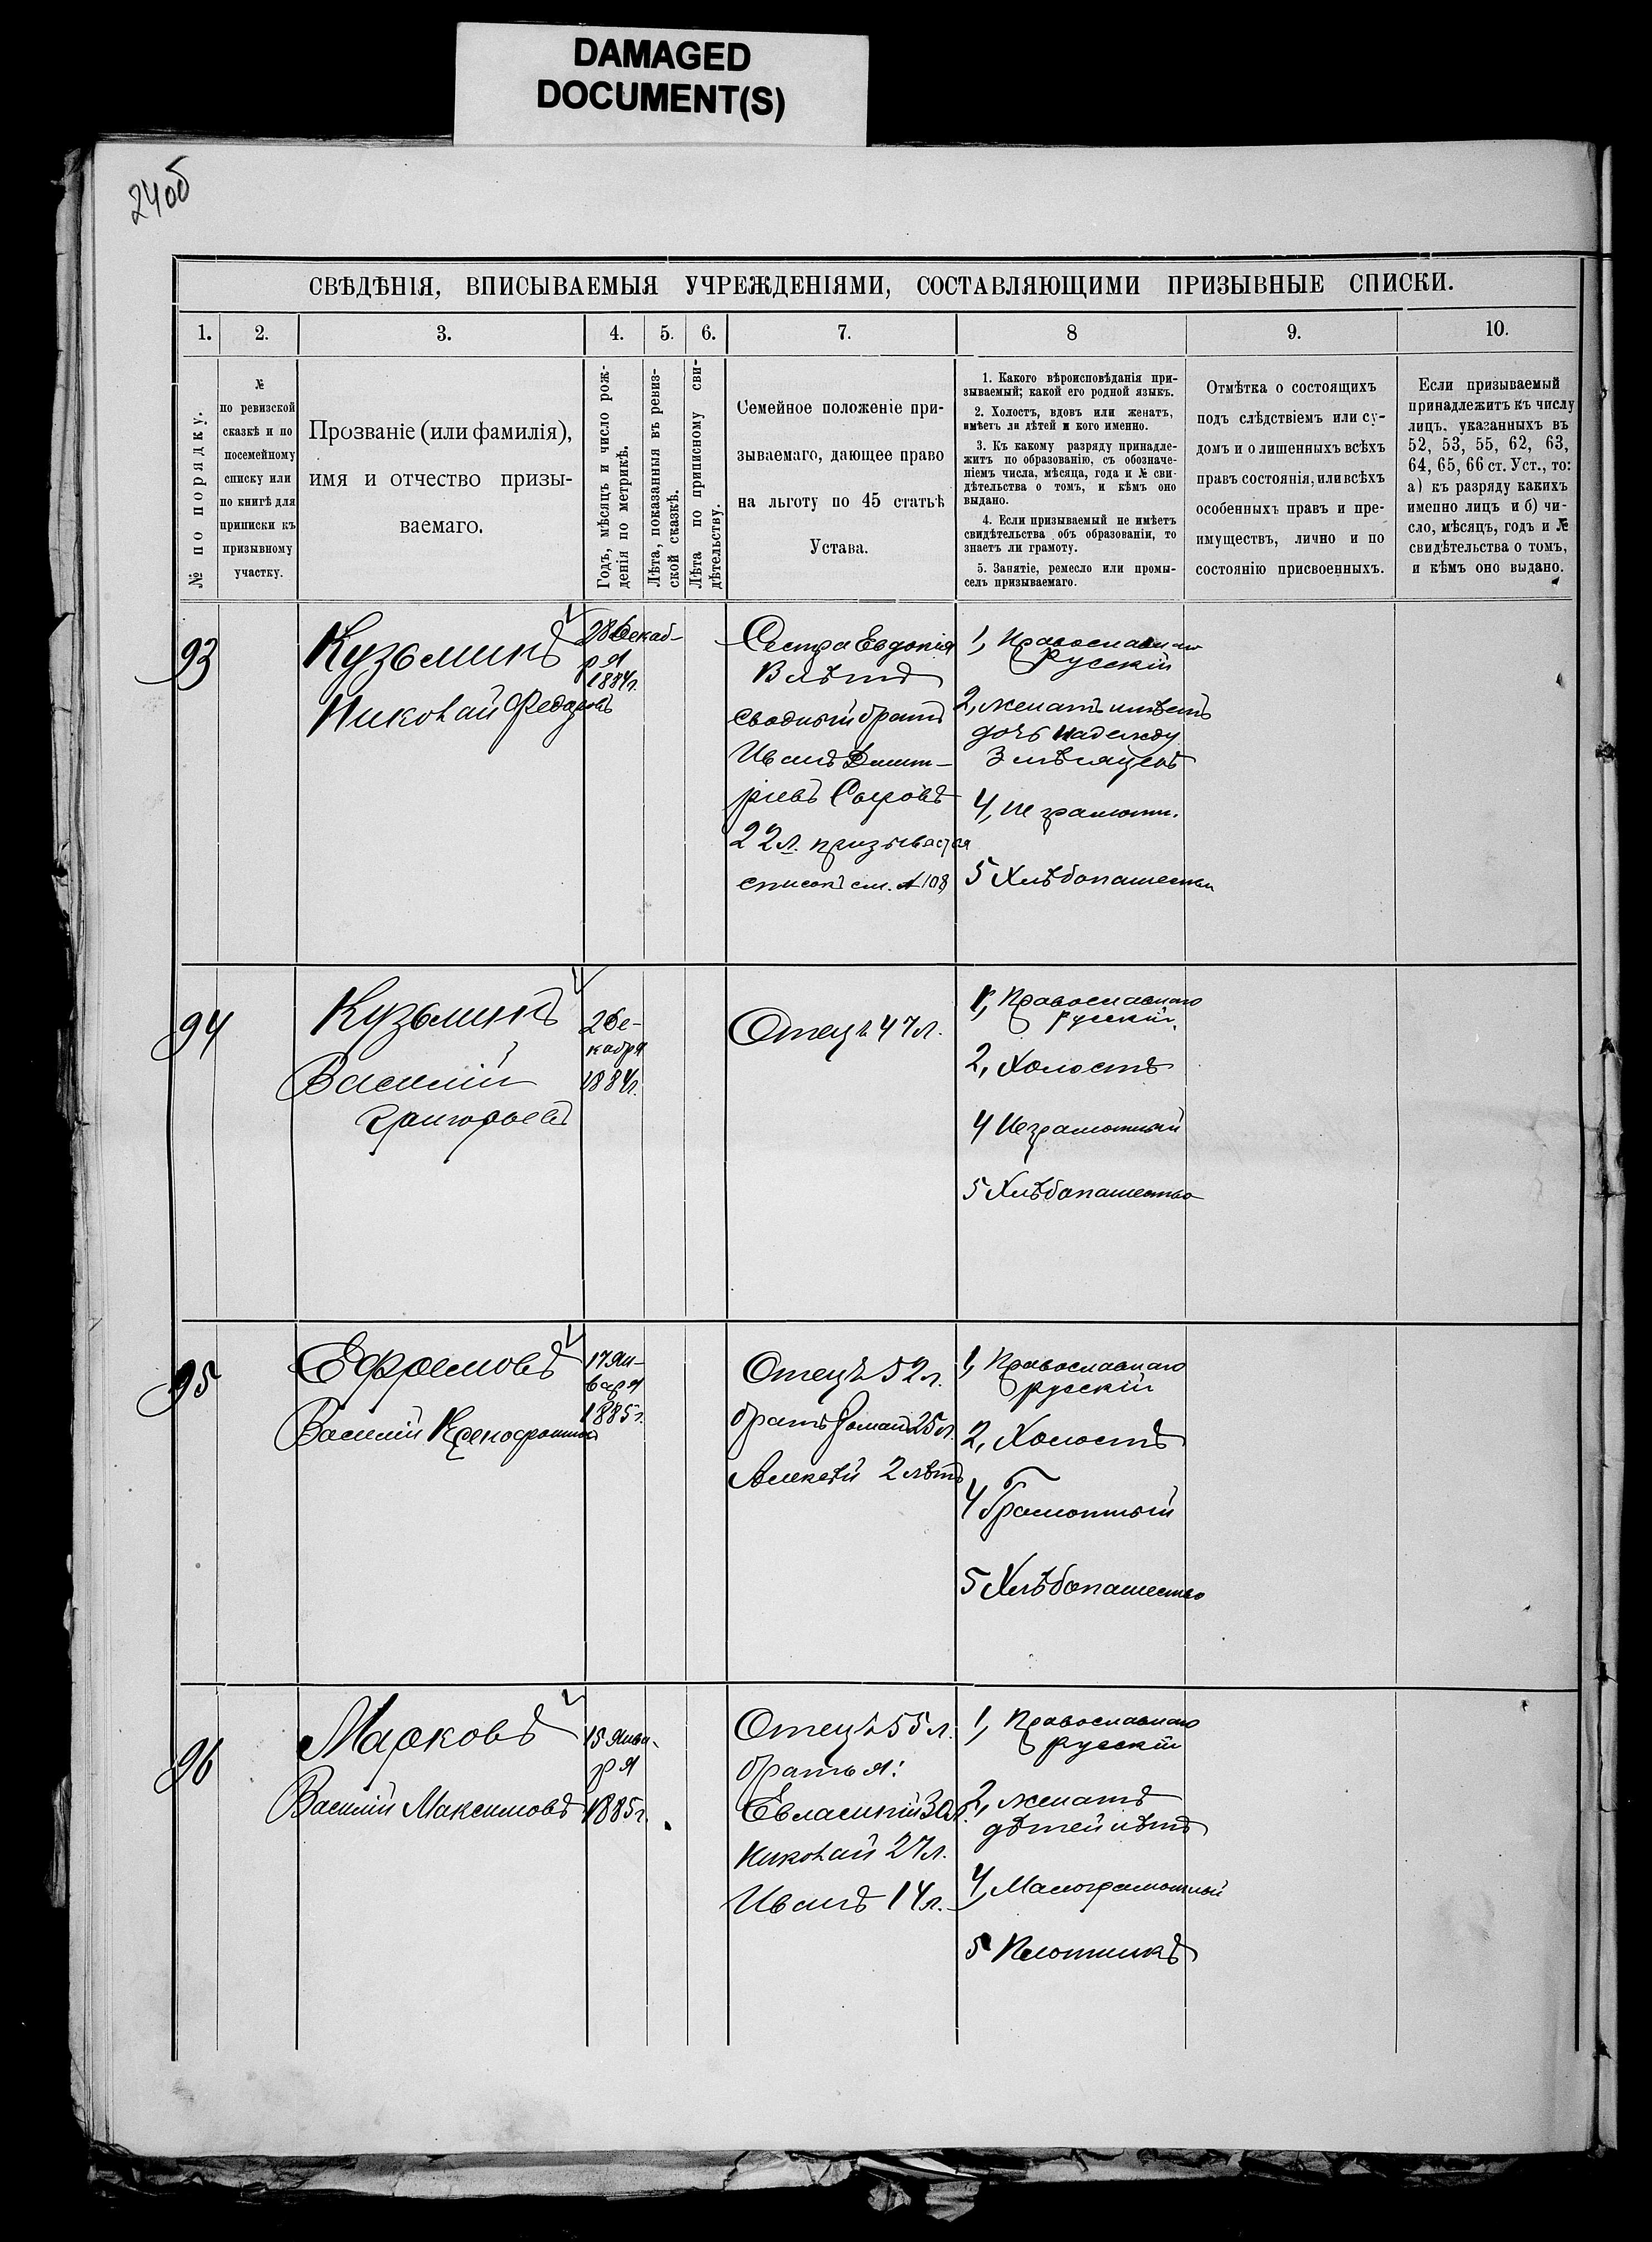 DAMAGED
DOCUMENT(S)
24об
СВѢДѢНІЯ, ВПИСЫВАЕМЫЯ УЧРЕЖДЕНІЯМИ, СОСТАВЛЯЮЩИМИ ПРИЗЫВНЫЕ СПИСКИ.
1. 2. 3. 4. 5. 6. 7. 8 9. 10.
№ по порядку.
№
по ревизской
сказкѣ и по
посемейному
списку или
по книгѣ для
приписки къ
призывному
участку.
Прозваніе (или фамилія),
имя и отчество призы-
ваемаго.
Годъ, мѣсяцъ и число рож-
денія по метрикѣ.
Лѣта, показанныя въ ревиз-
ской сказкѣ.
Лѣта по приписному сви-
дѣтельству.
Семейное положеніе при-
зываемаго, дающее право
на льготу по 45 статьѣ
Устава.
1. Какого вѣроисповѣданія при-
зываемый; какой его родной языкъ.
2. Холостъ, вдовъ или женатъ,
имѣетъ ли дѣтей и кого именно.
3. Къ какому разряду принадле-
житъ по образованію, съ обозначе-
ніемъ числа, мѣсяца, года и № сви-
дѣтельства о томъ, и кѣмъ оно
выдано.
4. Если призываемый не имѣетъ
свидѣтельства объ образованіи, то
знаетъ ли грамоту.
5. Занятіе, ремесло или промы-
селъ призываемаго.
Отмѣтка о состоящихъ
подъ слѣдствіемъ или су-
домъ и о лишенныхъ всѣхъ
правъ состоянія, или всѣхъ
особенныхъ правъ и пре-
имуществъ, лично и по
состоянію присвоенныхъ.
Если призываемый
принадлежитъ къ числу
лицъ, указанныхъ въ
52, 53, 55, 62, 63,
64, 65, 66 ст. Уст., то:
а) къ разряду какихъ
именно лицъ и б) чи-
сло, мѣсяцъ, годъ и №
свидѣтельства о томъ,
и кѣмъ оно выдано.
93
Кузьминъ
Николай Федоровъ
28 Декаб-
ря
1884г.
Сестра Евдокія
8 лѣтъ
Сводный братъ
Иванъ Дмит-
ріевъ Сыровъ
22л. призывается
списокъ см. № 108
1, Православнаго
Русскій
2, женатъ имѣетъ
дочь Надежду
3 мѣсяцевъ
4, не грамотн.
5 Хлѣбопашество
94
Кузьминъ
Василій
Григорьевъ
2 Де-
кабря
1884г.
Отецъ 47л.
1, Православнаго
русскій.
2, Холостъ
4 Неграмотный
5 Хлѣбопашество
95
Ефремовъ
Василій Ксенофонтовъ
17 Ян-
варя
1885г.
Отецъ 52л.
братъ Романъ 25л.
Алексѣй 2 лѣтъ
1, Православнаго
русскій
2, Холостъ
4 Грамотный
5 Хлѣбопашество
96
Марковъ
Василій Максимовъ
15 Янва-
ря
1885г.
Отецъ 55л.
братья:
Евлампій 30л.
Николай 27л.
Иванъ 14л.
1, Православнаго
русскій
2, женатъ
дѣтей нѣтъ
4, Малограмотный
5 Плотникъ